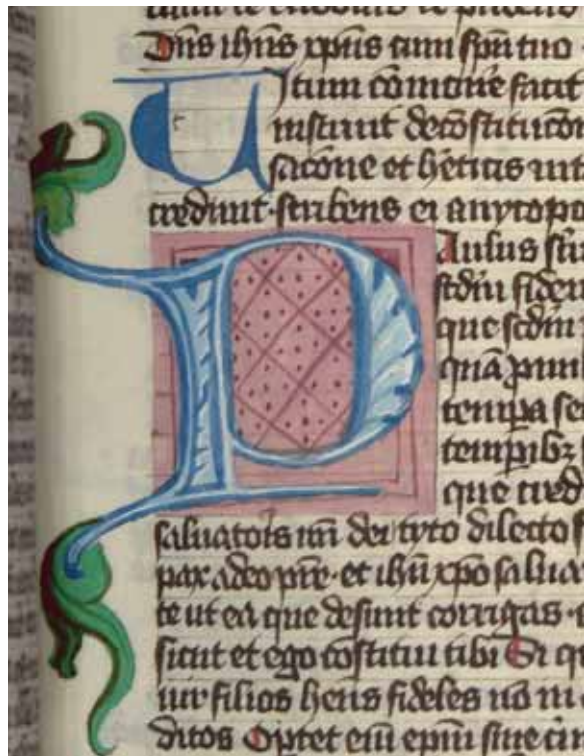 Dn̄s ih̄us xp̄us cum sp̄u tuo
Titum cōmone facit
instruit de cōstitucōn
et h̄eticis
credunt · scribens ei a nycopo
Paulus
scd̄m fidem
que scd̄m
quā
tempora se
tempīb₃
que cred
saluatoris n̄ri dei tyto dilecto
pax a deo pr̄e · et ih̄u xp̄o salua
te ut ea que desunt corrigas ·
sicut et ego cōstitui tibi Si q
uir filios h̄ens fideles nō in
ditos Optet eī ep̄m sine cri